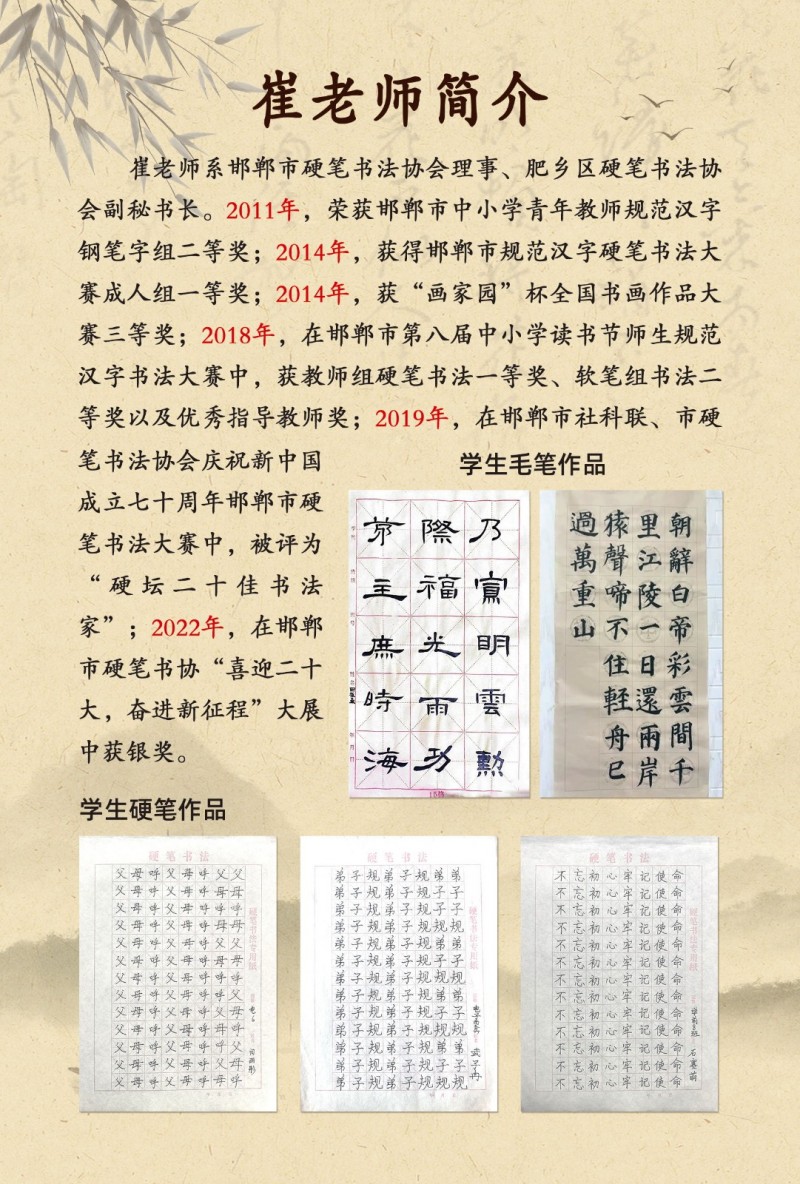 崔老师简介
崔老师系邯郸市硬笔书法协会理事、肥乡区硬笔书法协
会副秘书长。2011年，荣获邯郸市中小学青年教师规范汉字
钢笔字组二等奖；2014年，获得邯郸市规范汉字硬笔书法大
赛成人组一等奖；2014年，获“画家园”杯全国书画作品大
赛三等奖；2018年，在邯郸市第八届中小学读书节师生规范
汉字书法大赛中，获教师组硬笔书法一等奖、软笔组书法二
等奖以及优秀指导教师奖；2019年，在邯郸市社科联、市硬
笔书法协会庆祝新中国
成立七十周年邯郸市硬
笔书法大赛中，被评为
“硬坛二十佳书法
家”；2022年，在邯郸
市硬笔书协“喜迎二十
大，奋进新征程”大展
中获银奖。
学生毛笔作品
乃賔明雲勲
際福光雨功
茆主庶時海
朝辭白帝彩雲間千
里江陵一日還兩岸
猿聲啼不住輕舟已
過萬重山
学生硬笔作品
硬笔书法
父母呼父母呼父母
硬笔书法专用纸
硬笔书法
弟子规弟子规弟弟
弟子规弟子规子子
弟子规弟子规规规
硬笔书法专用纸
武子冉
硬笔书法
不忘初心牢记使命
不忘初心牢记使命
不忘初心牢记使命
不忘初心牢记使命
不忘初心牢记使命
不忘初心牢记使命
不忘初心牢记使命
不忘初心牢记使命
不忘初心牢记使命
不忘初心牢记使命
不忘初心牢记使命
不忘初心牢记使命
不忘初心牢记使命
硬笔书法专用纸